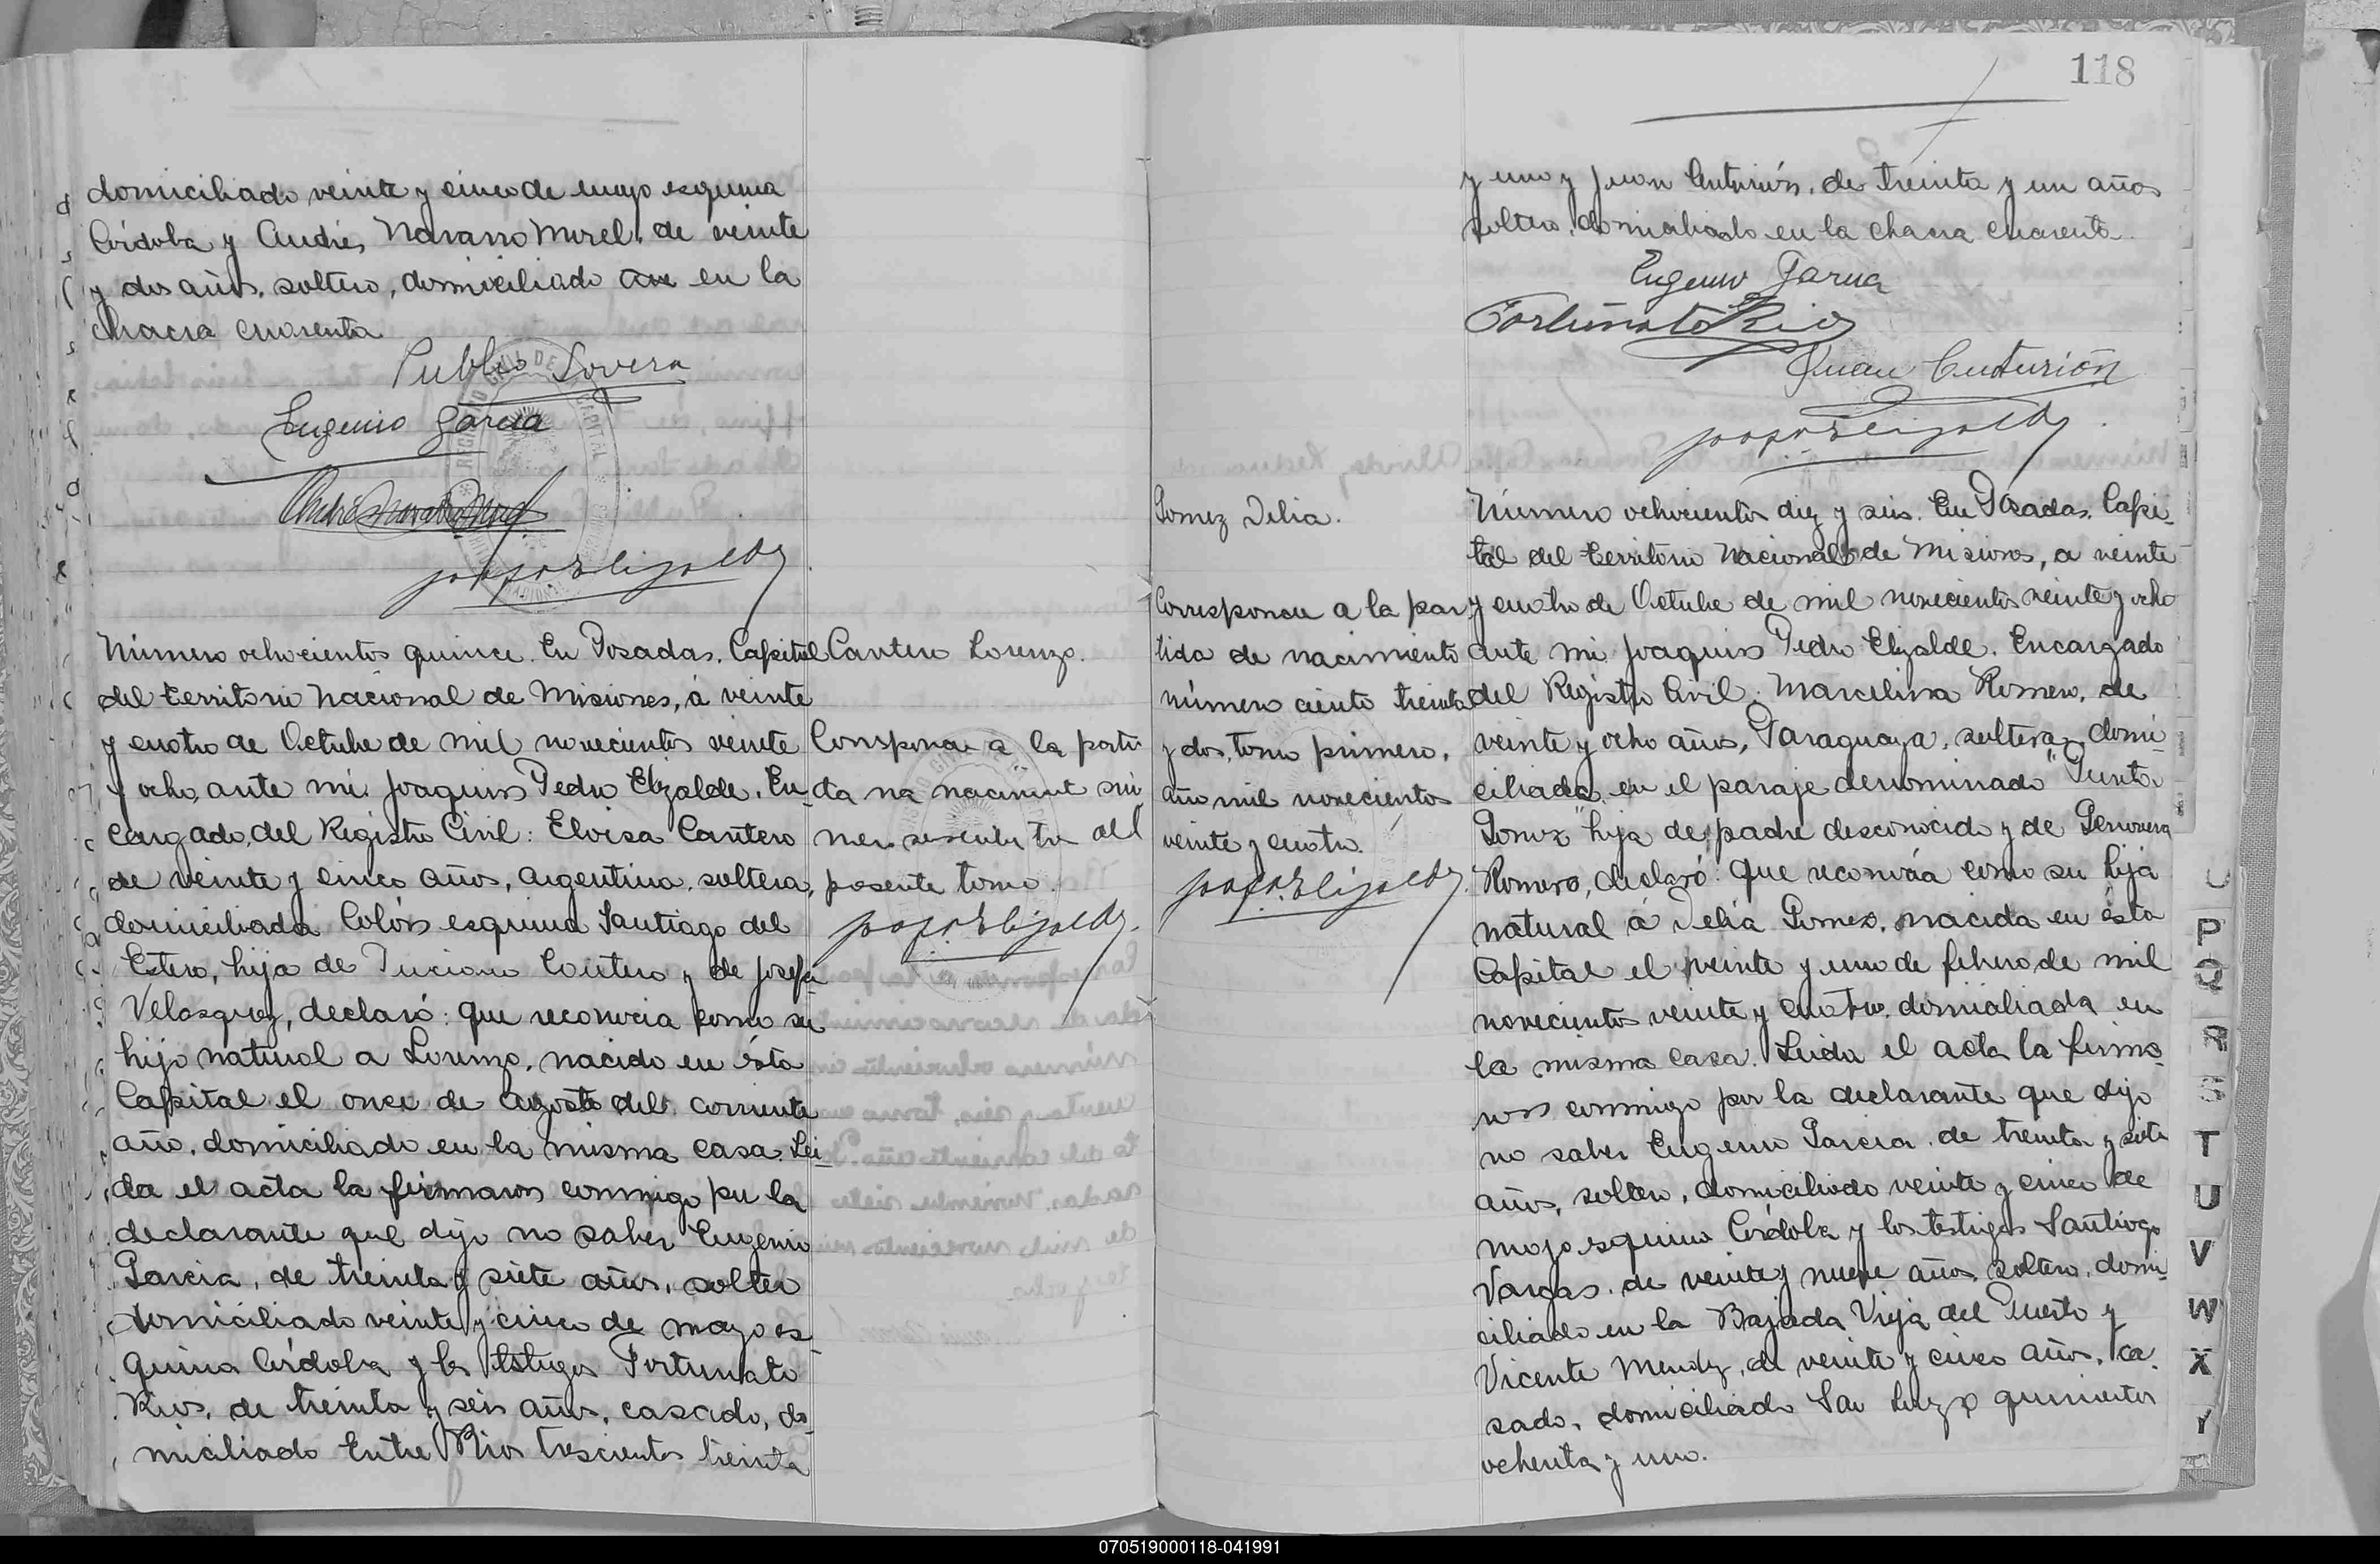 domiciliado veinte y cinco de mayo esquina
Córdoba y Andrés Navarro Morel, de veinte
y dos años, soltero, domiciliado en la
chacra cuarenta
Publio Lovera
Eugenio Garcia
Número ochocientos quince. En Posadas, Capital
del territorio Nacional de Misiones, á veinte
y cuatro de Octubre de mil novecientos veinte
y ocho, ante mi Joaquin Pedro Elizalde, En-
cargado, del Registro Civil: Eloisa Cantero
de veinte y cinco años, argentina, soltera,
domiciliada Colón esquina Santiago del
Estero, hija de Cantero y de Josefa
Velasquez, declaró: que reconocia como su
hijo natural a Lorenzo, nacido en ésta
Capital el once de Agosto del corriente
año, domiciliado en la misma casa. Lei-
da el acta la firmaron conmigo por la
declarante que dijo no saber Eugenio
Garcia, de treinta y siete años, soltero
domiciliado veinte y cinco de mayo es-
quina Córdoba y los testigos Fortunato
Rios, de treinta y seis años, casado, do-
miciliado Entre Rios trescientos treinta
Cantero Lorenzo.
Corresponde a la parti
da de nacimient nú
mero sesenta tre del
presente tomo.
118
y uno y Juan Centurión, de treinta y un años
soltero, domiciliado en la chacra cuarenta
Eugenio Garcia
Fortunato Rios
Juan Centurión
Gomez Delia.
Corresponde a la par
tida de nacimiento
número ciento treinta
y dos, tomo primero,
año mil novecientos
veinte y cuatro.
Número ochocientos diez y seis. En Posadas, Capi-
tal del territorio Nacional de Misiones, a veinte
y cuatro de Octubre de mil novecientos veinte y ocho
ante mi Joaquin Pedro Elizalde, Encargado
del Registro Civil: Marcelina Romero, de
veinte y ocho años, Paraguaya, soltera, domi-
ciliada en el paraje denominado "Punta
Gomez" hija de padre desconocido y de Genoveva
Romero, declaró: que reconocía como su hija
natural á Delia Gomez, nacida en ésta
Capital el veinte y uno de febrero de mil
novecientos veinte y cuatro, domiciliada en
la misma casa. Leida el acta la firma-
ron conmigo por la declarante que dijo
no saber Eugenio Garcia, de treinta y siete
años, soltero, domiciliado veinte y cinco de
mayo esquina Córdoba y los testigos Santiago
Vargas, de veinte y nueve años, soltero, domi-
ciliado en la Bajada Vieja del Puerto y
Vicente Mendez, de veinte y cinco años, ca-
sado, domiciliado San quinientos
ochenta y uno.
P
Q
R
S
T
U
V
W
X
Y
070519000118-041991